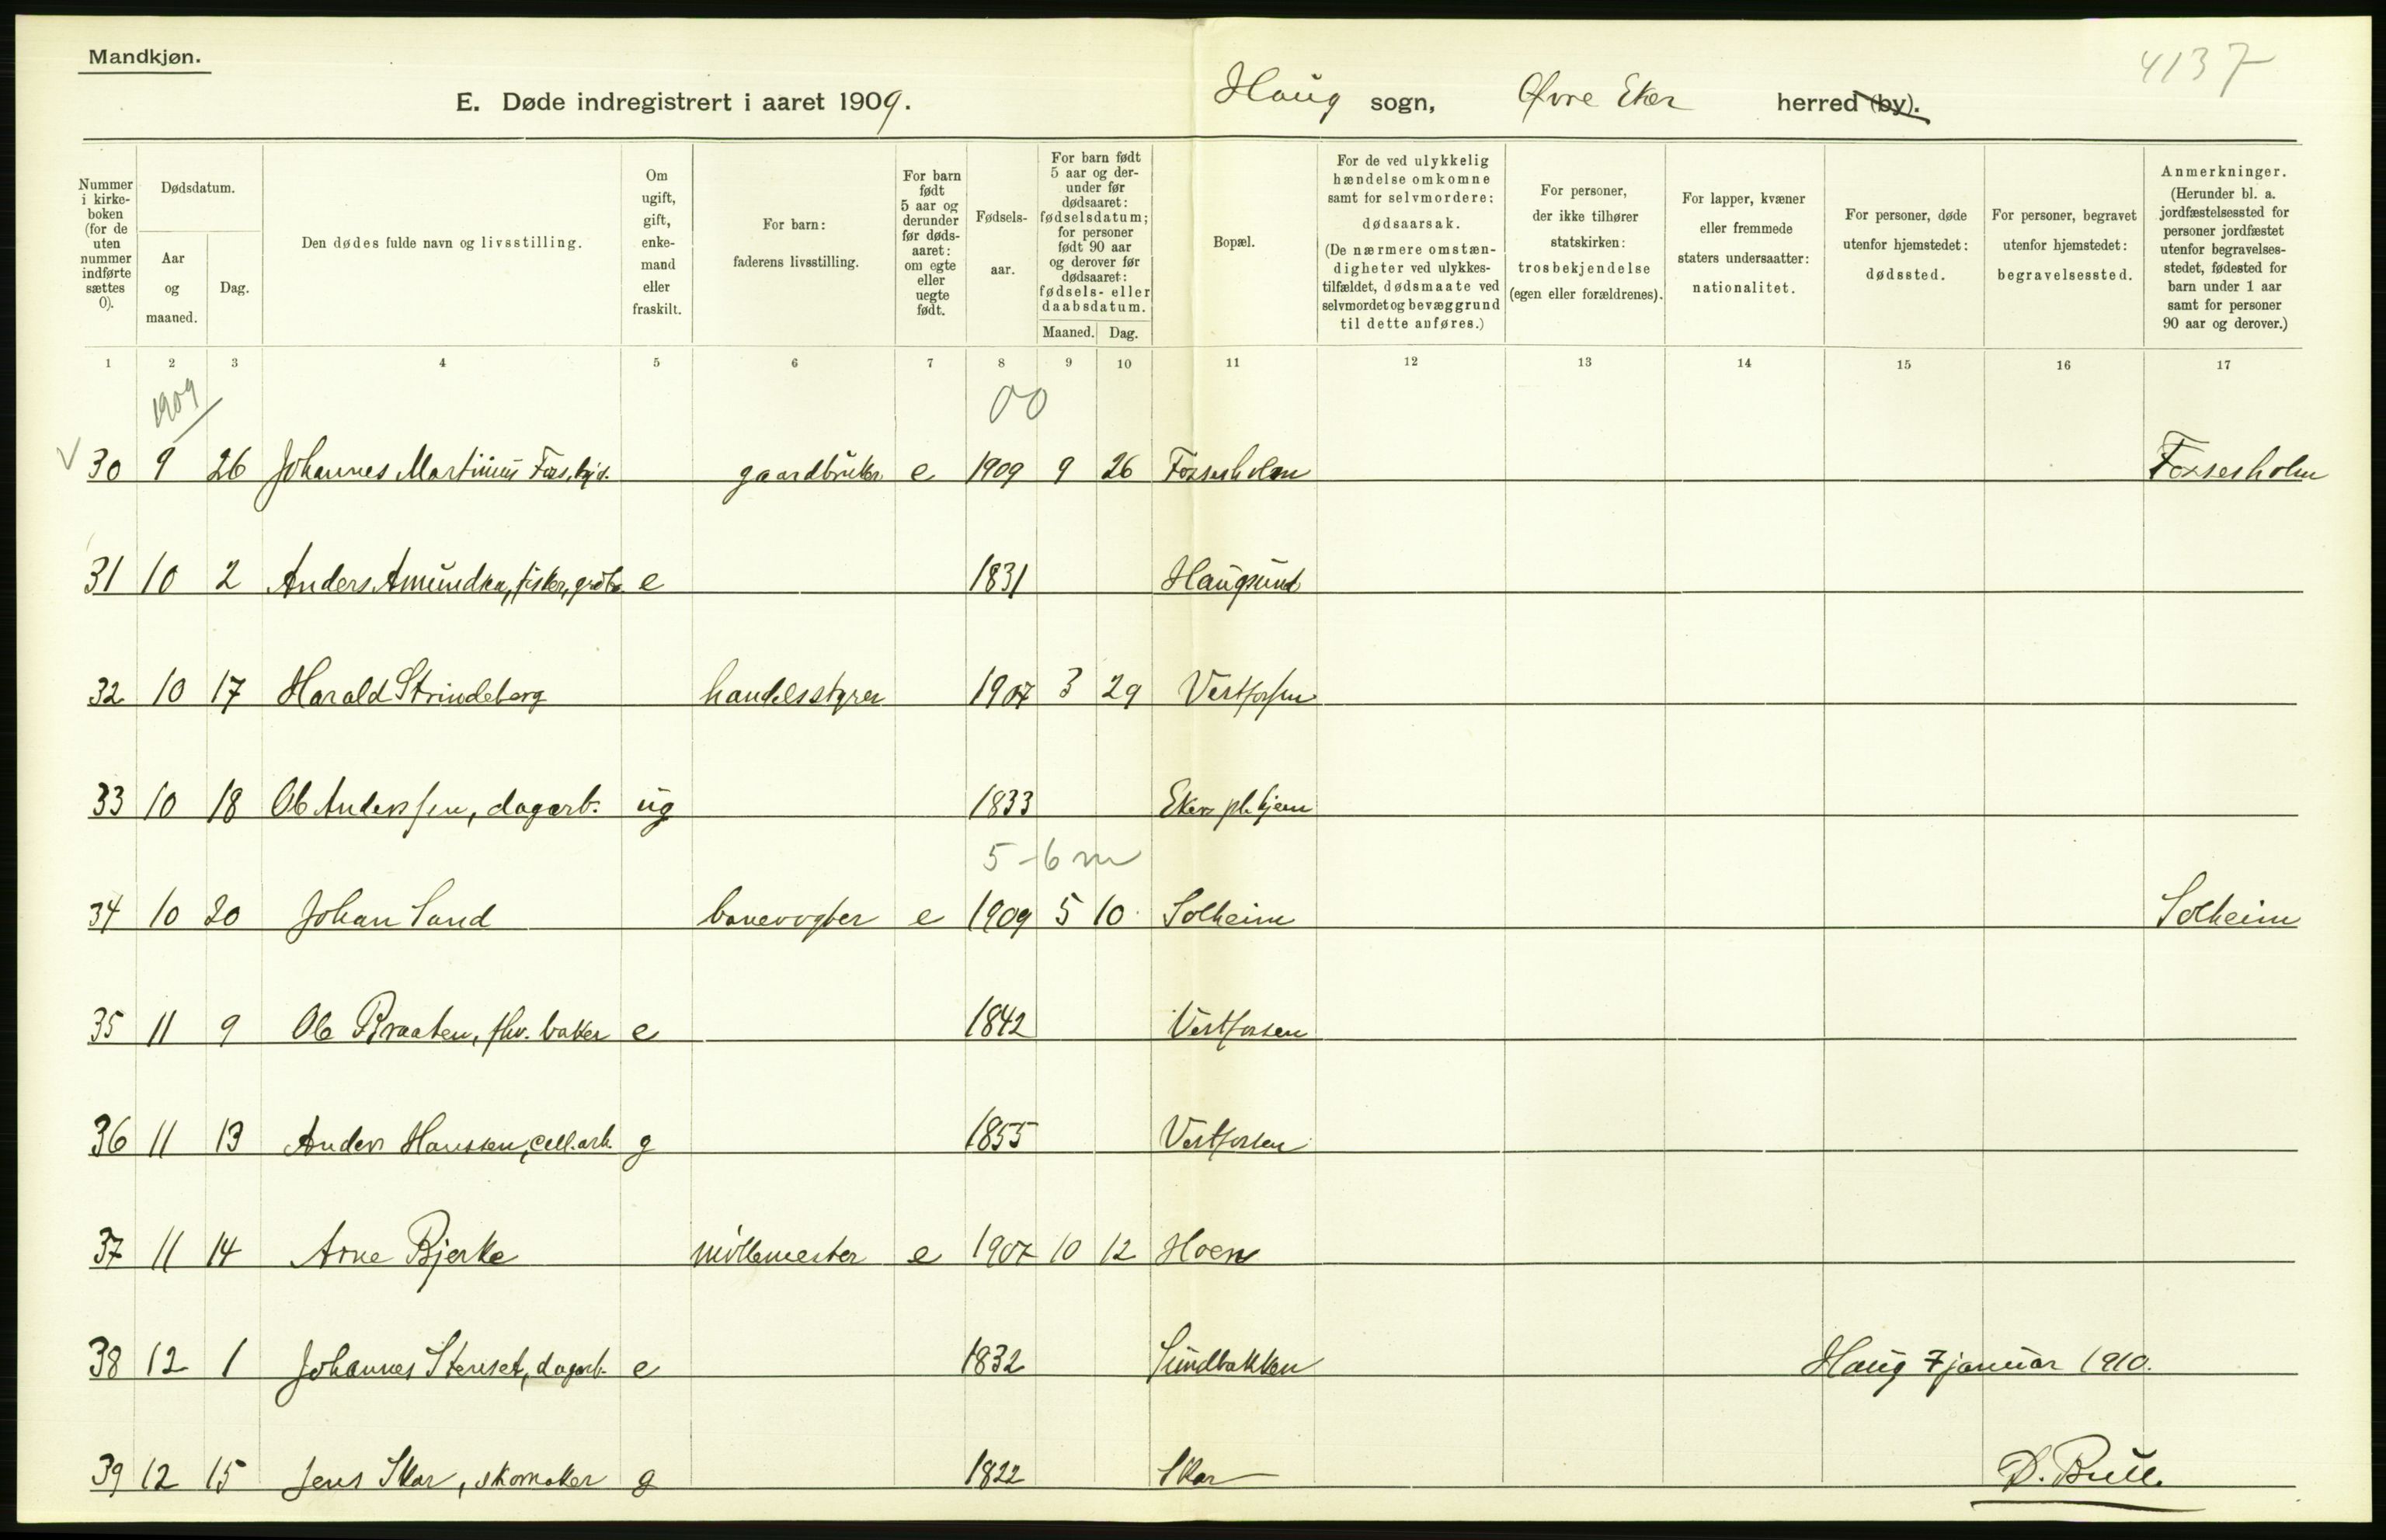 Mandkjøn.
4137
E. Døde indregistrert i aaret 1909. Haug sogn, Øvre Eker herred (by).
Nummer i kirke-boken (for de uten nummer indførte sættes 0).
Dødsdatum.
Aar og maaned.
Dag.
Den dødes fulde navn og livsstilling.
Om ugift, gift, enke-mand eller fraskilt.
For barn: faderens livsstilling.
For barn født 5 aar og derunder før døds-aaret: om egte eller uegte født.
Fødsels-aar.
For barn født 5 aar og der-under før dødsaaret: fødselsdatum; for personer født 90 aar og derover før dødsaaret: fødsels- eller daabsdatum.
Maaned. Dag.
Bopæl.
For de ved ulykkelig hændelse omkomne samt for selvmordere: dødsaarsak. (De nærmere omstæn-digheter ved ulykkes-tilfældet, dødsmaate ved selvmordet og bevæggrund til dette anføres.)
For personer, der ikke tilhører statskirken: trosbekjendelse (egen eller forældrenes).
For lapper, kvæner eller fremmede staters undersaatter: nationalitet.
For personer, døde utenfor hjemstedet: dødssted.
For personer, begravet utenfor hjemstedet: begravelsessted.
Anmerkninger. (Herunder bl. a. jordfæstelsessted for personer jordfæstet utenfor begravelses-stedet, fødested for barn under 1 aar samt for personer 90 aar og derover.)
1 2 3 4 5 6 7 8 9 10 11 12 13 14 15 16 17
1909 00
30 9 26 Johannes Martinius gaardbruker e 1909 9 26 Fossesholm Fossesholm
31 10 2 Anders Amundsen, fisker, e 1831 Haugsund
32 10 17 Harald Strindeberg handelsstyrer 1907 3 29 Vestfossen
33 10 18 Ole Anderssen, dagarb. ug 1833 Ekers pl. hjem
5-6 m
34 10 20 Johan Sand banevogter e 1909 5 10 Solheim Solheim
35 11 9 Ole Braaten, fhv. baker e 1842 Vestfossen
36 11 13 Anders Hanssen, cell.arb. g 1855 Vestfossen
37 11 14 Arne Bjerke möllemester e 1907 10 12 Hoen
38 12 1 Johannes Stenset, dagarb. e 1832 Sundbakken Haug 7 januar 1910.
39 12 15 Jens Skar, skomaker g 1822 Skar D. Bull.